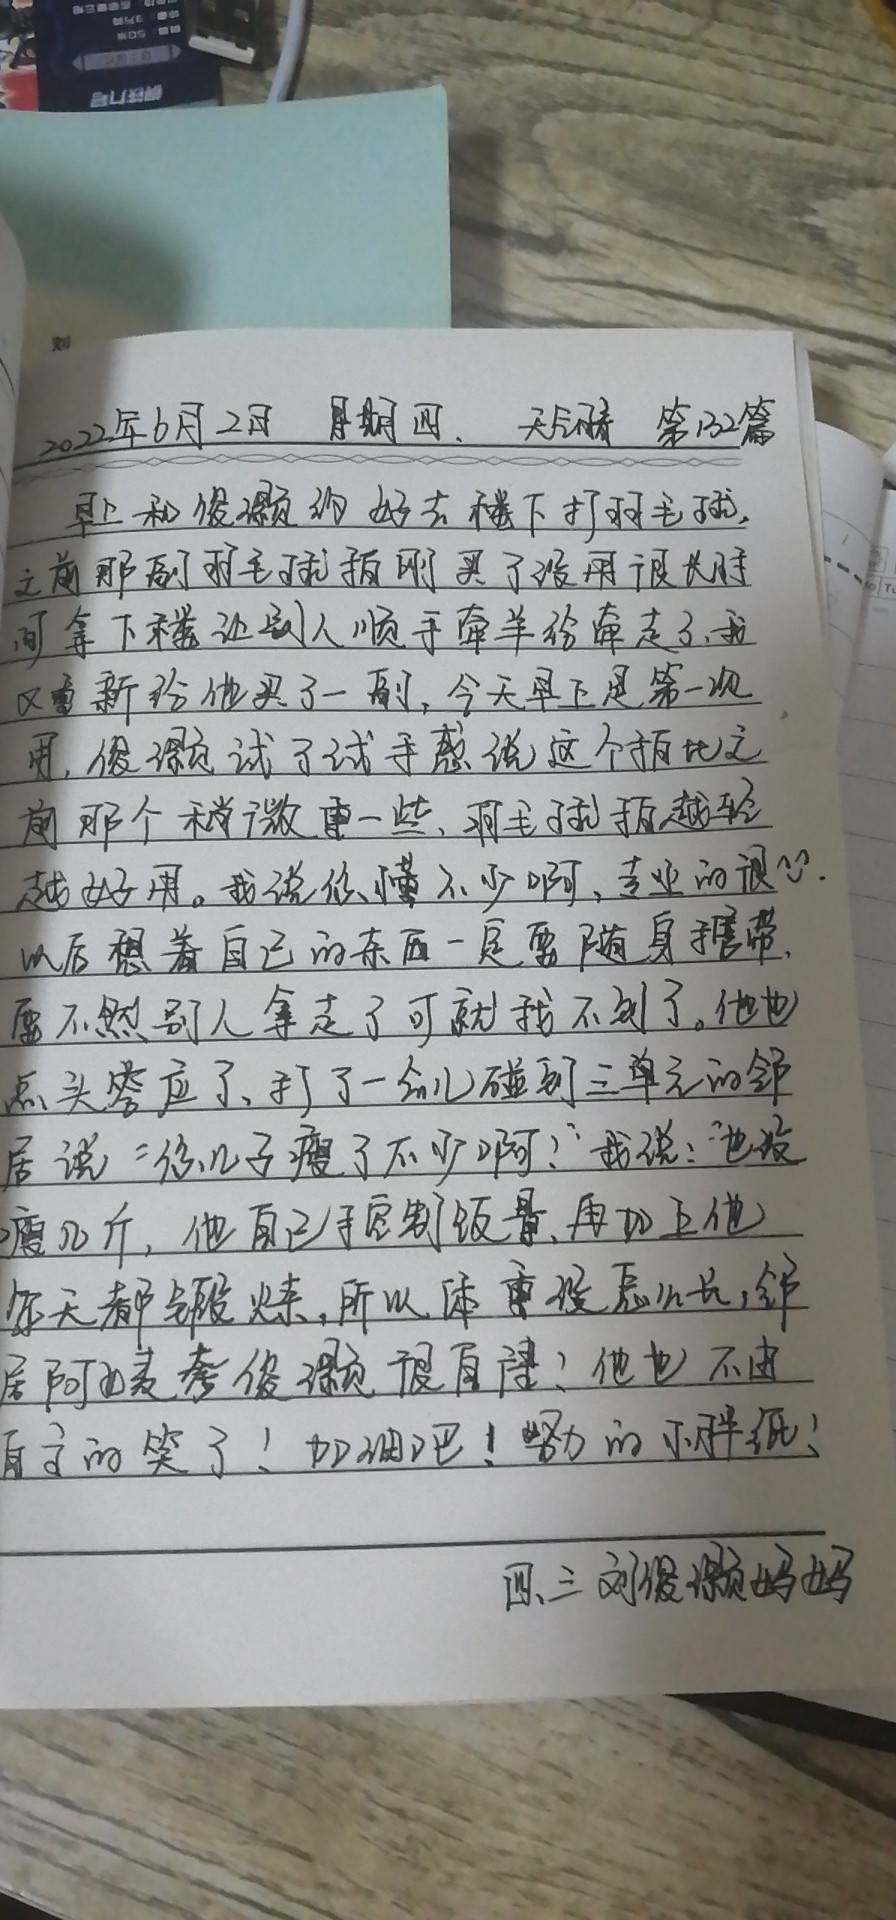 刘
2022年6月2日 星期四、 天气晴 第132篇
早上和俊灏约好去楼下打羽毛球,
之前那副羽毛球拍刚买了没用很长时
间拿下楼让别人顺手牵羊给牵走了、我
又重新给他买了一副,今天早上是第一次
用,俊灏试了试手感说这个拍比之
前那个稍微重一些、羽毛球拍越轻
越好用。我说你懂不少啊、专业的很
以后想着自己的东西一定要随身携带,
要不然别人拿走了可就找不到了。他也
点头答应了、打了一会儿碰到三单元的邻
居说“你儿子瘦了不少啊!”我说:“他没
瘦几斤,他自己控制饭量、再加上他
每天都锻炼,所以体重没怎么长,邻
居阿姨夸俊灏很自律!他也不由
自主的笑了!加油吧!努力的小胖纸!
四、三 刘俊灏妈妈